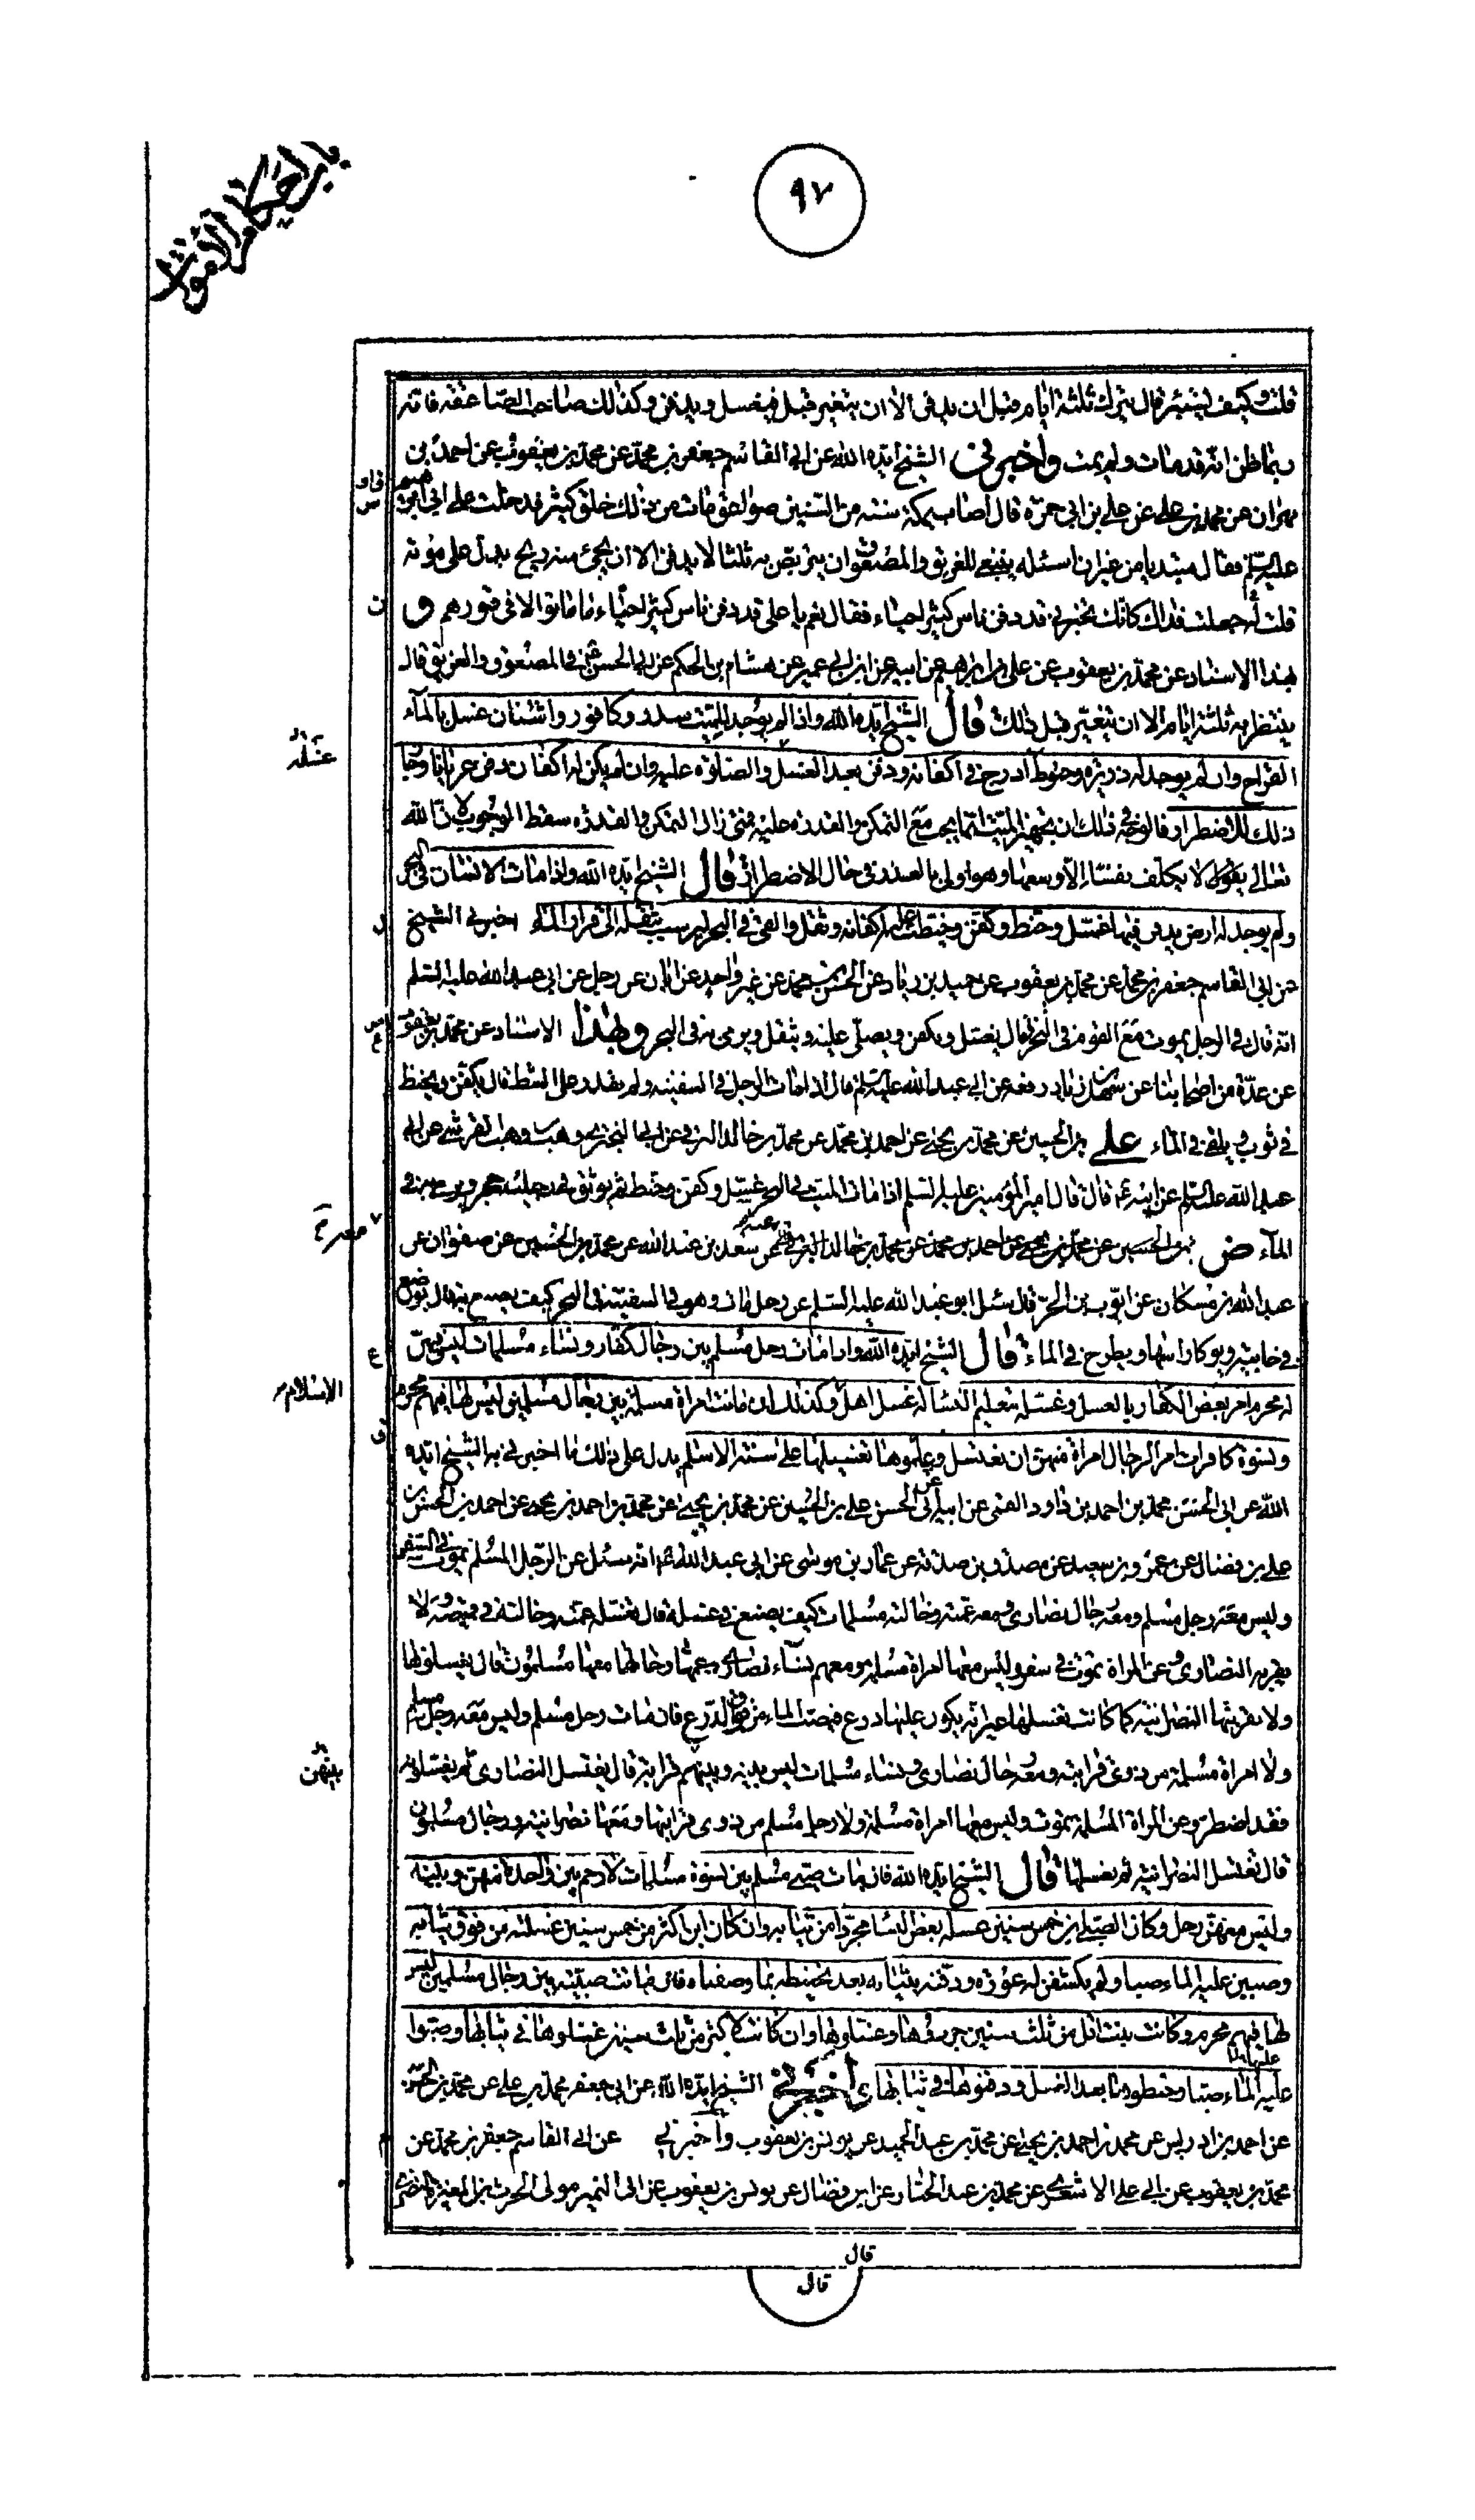 ٩٧
قلت وكيف يستبرئ قال يترك ثلثة ايام قبل ان يدفن الا ان يتغير قبل فيغسل ويدفن وكذلك صاحب الصاعقة فانه
ربما ظن انه قد مات ولم يمت واخبرني الشيخ ايده الله عن ابي القاسم جعفر بن محمد عن محمد بن يعقوب عن احمد بن
مهران عن محمد بن علي عن علي بن ابي حمزة قال اصاب بمكة سنة من السنين صواعق مات من ذلك خلق كثير فدخلت على ابي ابرهيم
عليه السلم فقال مبتديا من غير ان اسئله ينبغي للغريق والمصعوق ان يتربص به ثلثا لا يدفن الا ان يجئ منه ريح يدل على موته
قلت له جعلت فداك كانك تخبرني قد دفن ناس كثير احياء فقال نعم يا علي قد دفن ناس كثير احياء ما ماتوا الا في قبورهم و
بهذا الاسناد عن محمد بن يعقوب عن علي بن ابرهيم عن ابيه عن ابن ابي عمير عن هشام بن الحكم عن ابي الحسن ع في المصعوق والغريق قال
ينتظر به ثلثة ايام الا ان يتغير قبل ذلك قال الشيخ ايده الله واذا لم يوجد للميت سدر وكافور واشنان غسل بالماء
القراح وان لم يوجد له ذريرة وحنوط ادرج في اكفانه ودفن بعد الغسل والصلوة عليه وان لم يكن له اكفان دفن عريانا وجاز
ذلك للاضطرار فالوجه في ذلك ان تجهيز الميت انما يجب مع التمكن والقدرة عليه فمتى زال التمكن والقدرة سقط الوجوب لان الله
تعالى يقول لا يكلف نفسا الا وسعها وهو اولى بالعذر في حال الاضطرار قال الشيخ ايده الله واذا مات الانسان في البحر
ولم يوجد له ارض يدفن فيها غسل وحنط وكفن وخيطت عليه اكفانه وثقل والقي في البحر ليرسب بثقله الى قرار الماء اخبرني الشيخ
عن ابي القاسم جعفر بن محمد عن محمد بن يعقوب عن حميد بن زياد عن الحسن بن محمد عن غير واحد عن ابان عن رجل عن ابي عبد الله عليه السلم
انه قال في الرجل يموت مع القوم في البحر قال يغسل ويكفن ويصلى عليه ويثقل ويرمى به في البحر وبهذا الاسناد عن محمد بن يعقوب
عن عدة من اصحابنا عن سهل بن زياد رفعه عن ابي عبد الله عليه السلم قال اذا مات الرجل في السفينة ولم يقدر على الشط قال يكفن ويحنط
في ثوب ويلقى في الماء علي بن الحسين عن محمد بن يحيى عن احمد بن محمد عن محمد بن خالد البرقي عن ابي البختري وهب بن وهب القرشي عن ابي
عبد الله عليه السلم عن ابيه ع قال قال امير المؤمنين عليه السلم اذا مات الميت في البحر غسل وكفن وحنط ثم يوثق في رجليه حجر ويرمى به في
الماء عن سعد بن عبد الله عن محمد بن الحسين عن صفوان عن
عبد الله بن مسكان عن ايوب بن الحر قال سئل ابو عبد الله عليه السلم عن رجل مات وهو في السفينة في البحر كيف يصنع به قال يوضع
في خابية ويوكا راسها ويطرح في الماء قال الشيخ ايده الله وان مات رجل مسلم بين رجال كفار ونساء مسلمات ليس فيهن
له محرم امر بعض الكفار بالغسل وغسله بتعليم النساء له غسل اهل وكذلك ان ماتت امراة مسلمة بين رجال مسلمين ليس لها فيهم محرم
ونسوة كافرات امر الرجال امراة منهن ان تغتسل ويعلموها تغسيلها على سنة الاسلم يدل على ذلك ما اخبرني به الشيخ ايده
الله عن ابي الحسن محمد بن احمد بن داود القمي عن ابيه عن ابي الحسن علي بن الحسين عن محمد بن يحيى عن محمد بن احمد بن يحيى عن احمد بن الحسن بن
علي بن فضال عن عمرو بن سعيد عن مصدق بن صدقة عن عمار بن موسى عن ابي عبد الله ع انه سئل عن الرجل المسلم يموت في السفر
وليس معه رجل مسلم ومعه رجال نصارى ومعه عمته وخالته مسلمات كيف يصنع في غسله قال تغسله عمته وخالته في قميصه ولا
يقربه النصارى وعن المراة تموت في سفر وليس معها امراة مسلمة ومعهم نساء نصارى وعمها وخالها معها مسلمون قال يغسلونها
ولا تقربنها النصرانية كما كانت تغسلها غير انه يكون عليها درع فيصب الماء من فوق الدرع فان مات رجل مسلم وليس معه رجل مسلم
ولا امراة مسلمة من ذوي قرابته ومعه رجال نصارى ونساء مسلمات ليس بينه وبينهم قرابة قال يغتسل النصارى ثم يغسلونه
فقد اضطر وعن المراة المسلمة تموت وليس معها امراة مسلمة ولا رجل مسلم من ذوي قرابتها ومعها نصرانية ورجال مسلمون
قال تغتسل النصرانية ثم تغسلها قال الشيخ ايده الله فان مات صبي مسلم بين نسوة مسلمات لا رحم بين واحدة منهن وبينه
وليس معهن رجل وكان الصبي ابن خمس سنين غسله بعض النساء مجردا من ثيابه وان كان ابن اكثر من خمس سنين غسلنه من فوق ثيابه
وصببن عليه الماء صبا ولم يكشفن له عورة ودفنه بثيابه بعد تحنيطه بما وصفناه فان ماتت صبية بين رجال مسلمين ليس
لها فيهم محرم وكانت بنت اقل من ثلث سنين جردوها وغسلوها وان كانت لاكثر من ثلث سنين غسلوها في ثيابها وصبوا
عليها الماء صبا وحنطوها بعد الغسل ودفنوها في ثيابها اخبرني الشيخ ايده الله عن ابي جعفر محمد بن علي عن محمد بن الحسن
عن احمد بن ادريس عن محمد بن احمد بن يحيى عن محمد بن عبد الحميد عن يونس بن يعقوب واخبرني عن ابي القاسم جعفر بن محمد عن
محمد بن يعقوب عن ابي علي الاشعري عن محمد بن عبد الجبار عن ابن فضال عن يونس بن يعقوب عن ابي النمير مولى الحرث بن المغيرة النضري
قال
قال
غسله
الاسلام
بينهن